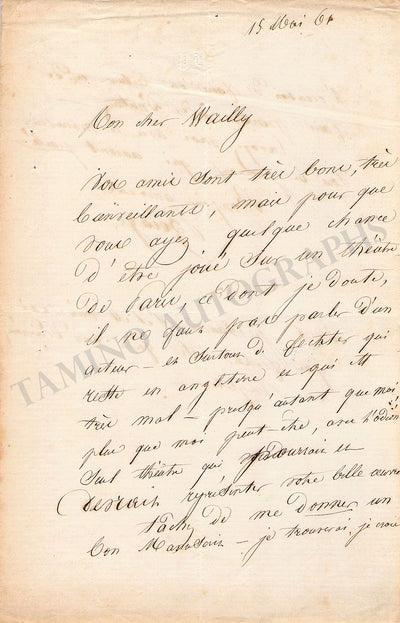 15 Mai 61
Mon cher Wailly
vos amis sont très bons, très
bienveillants, mais pour que
vous ayez quelque chance
d'être joué sur un théâtre
de Paris, ce dont je doute,
il ne faut pas parler d'un
acteur – et surtout de Fechter qui
reste en angleterre et qui est
très mal – presqu'autant que moi
plus que moi peut-être, avec l'odéon
seul théâtre qui pourrait et
devrait représenter votre belle œuvre
tachez de me donner un
bon Manuscrit – je trouverai, je crois
TAMINO AUTOGRAPHS